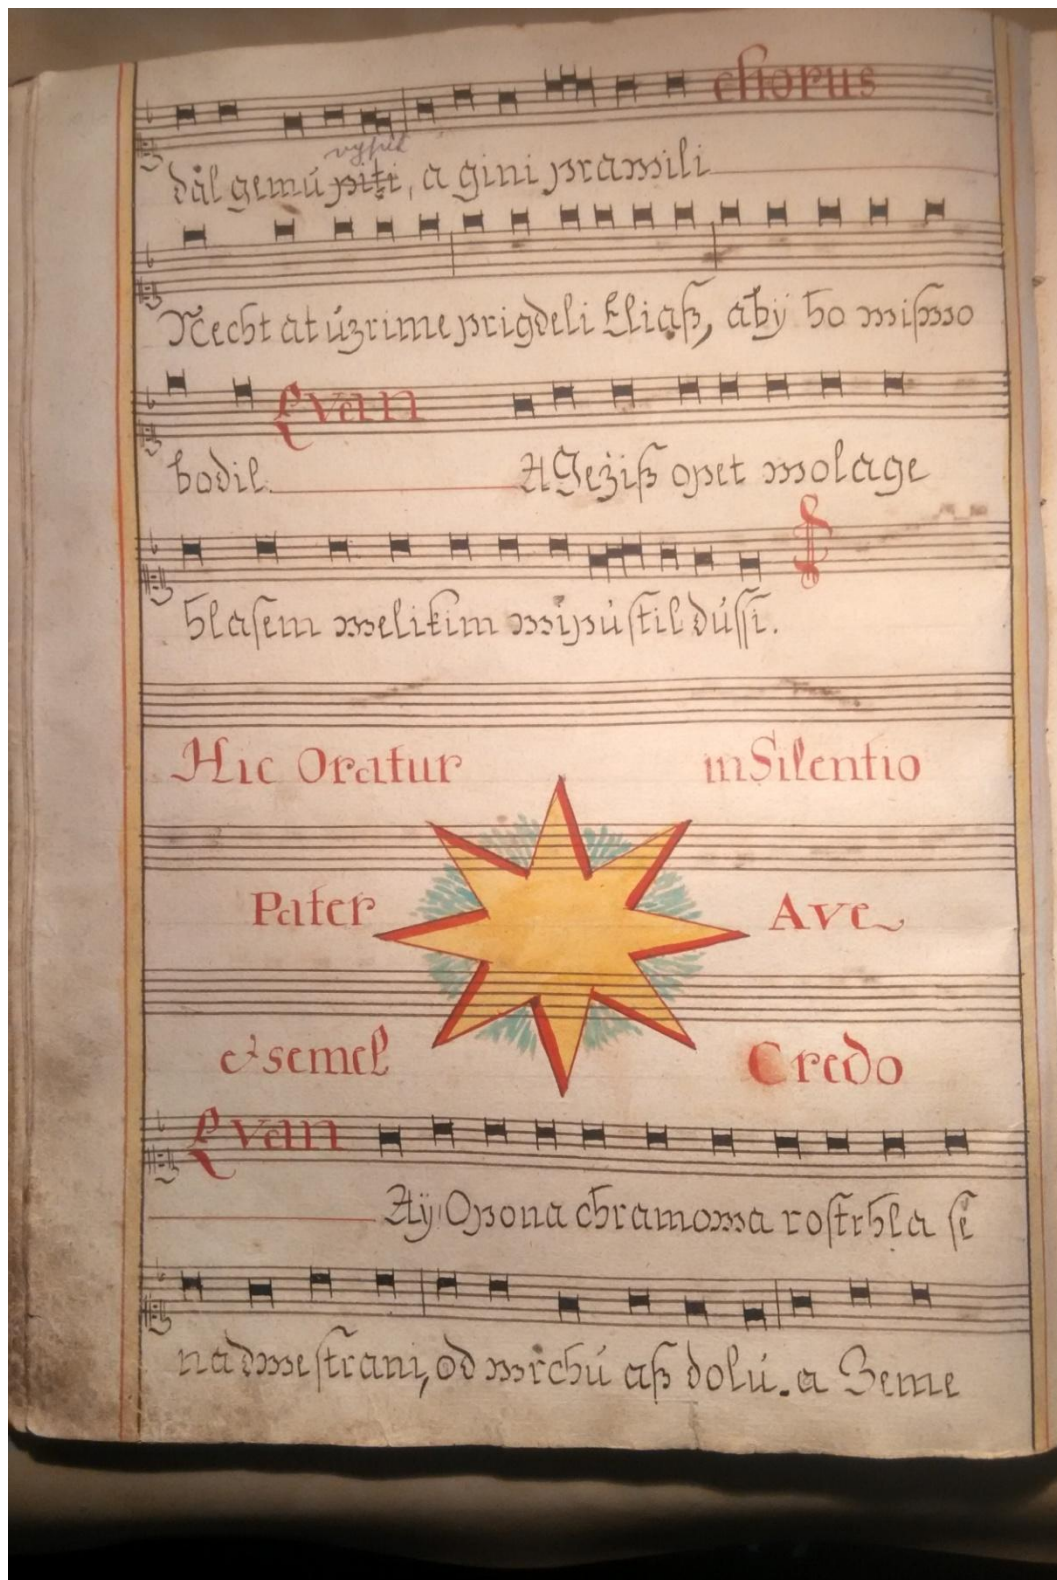 chorus
vypil
dál gemú piti, a gini prawili
Necht at úzrime prigdeli Eliaß, abÿ ho wißwo
bodil. Evan A Gežiß opet wolage
hlasem welikim wipústil dússi.
Hic Oratur in Silentio
Pater Ave
et semel Credo
Evan
Aÿ Opona chramowa rostrhla sě
nadwe strani, od wrchú aß dolú. a Zeme